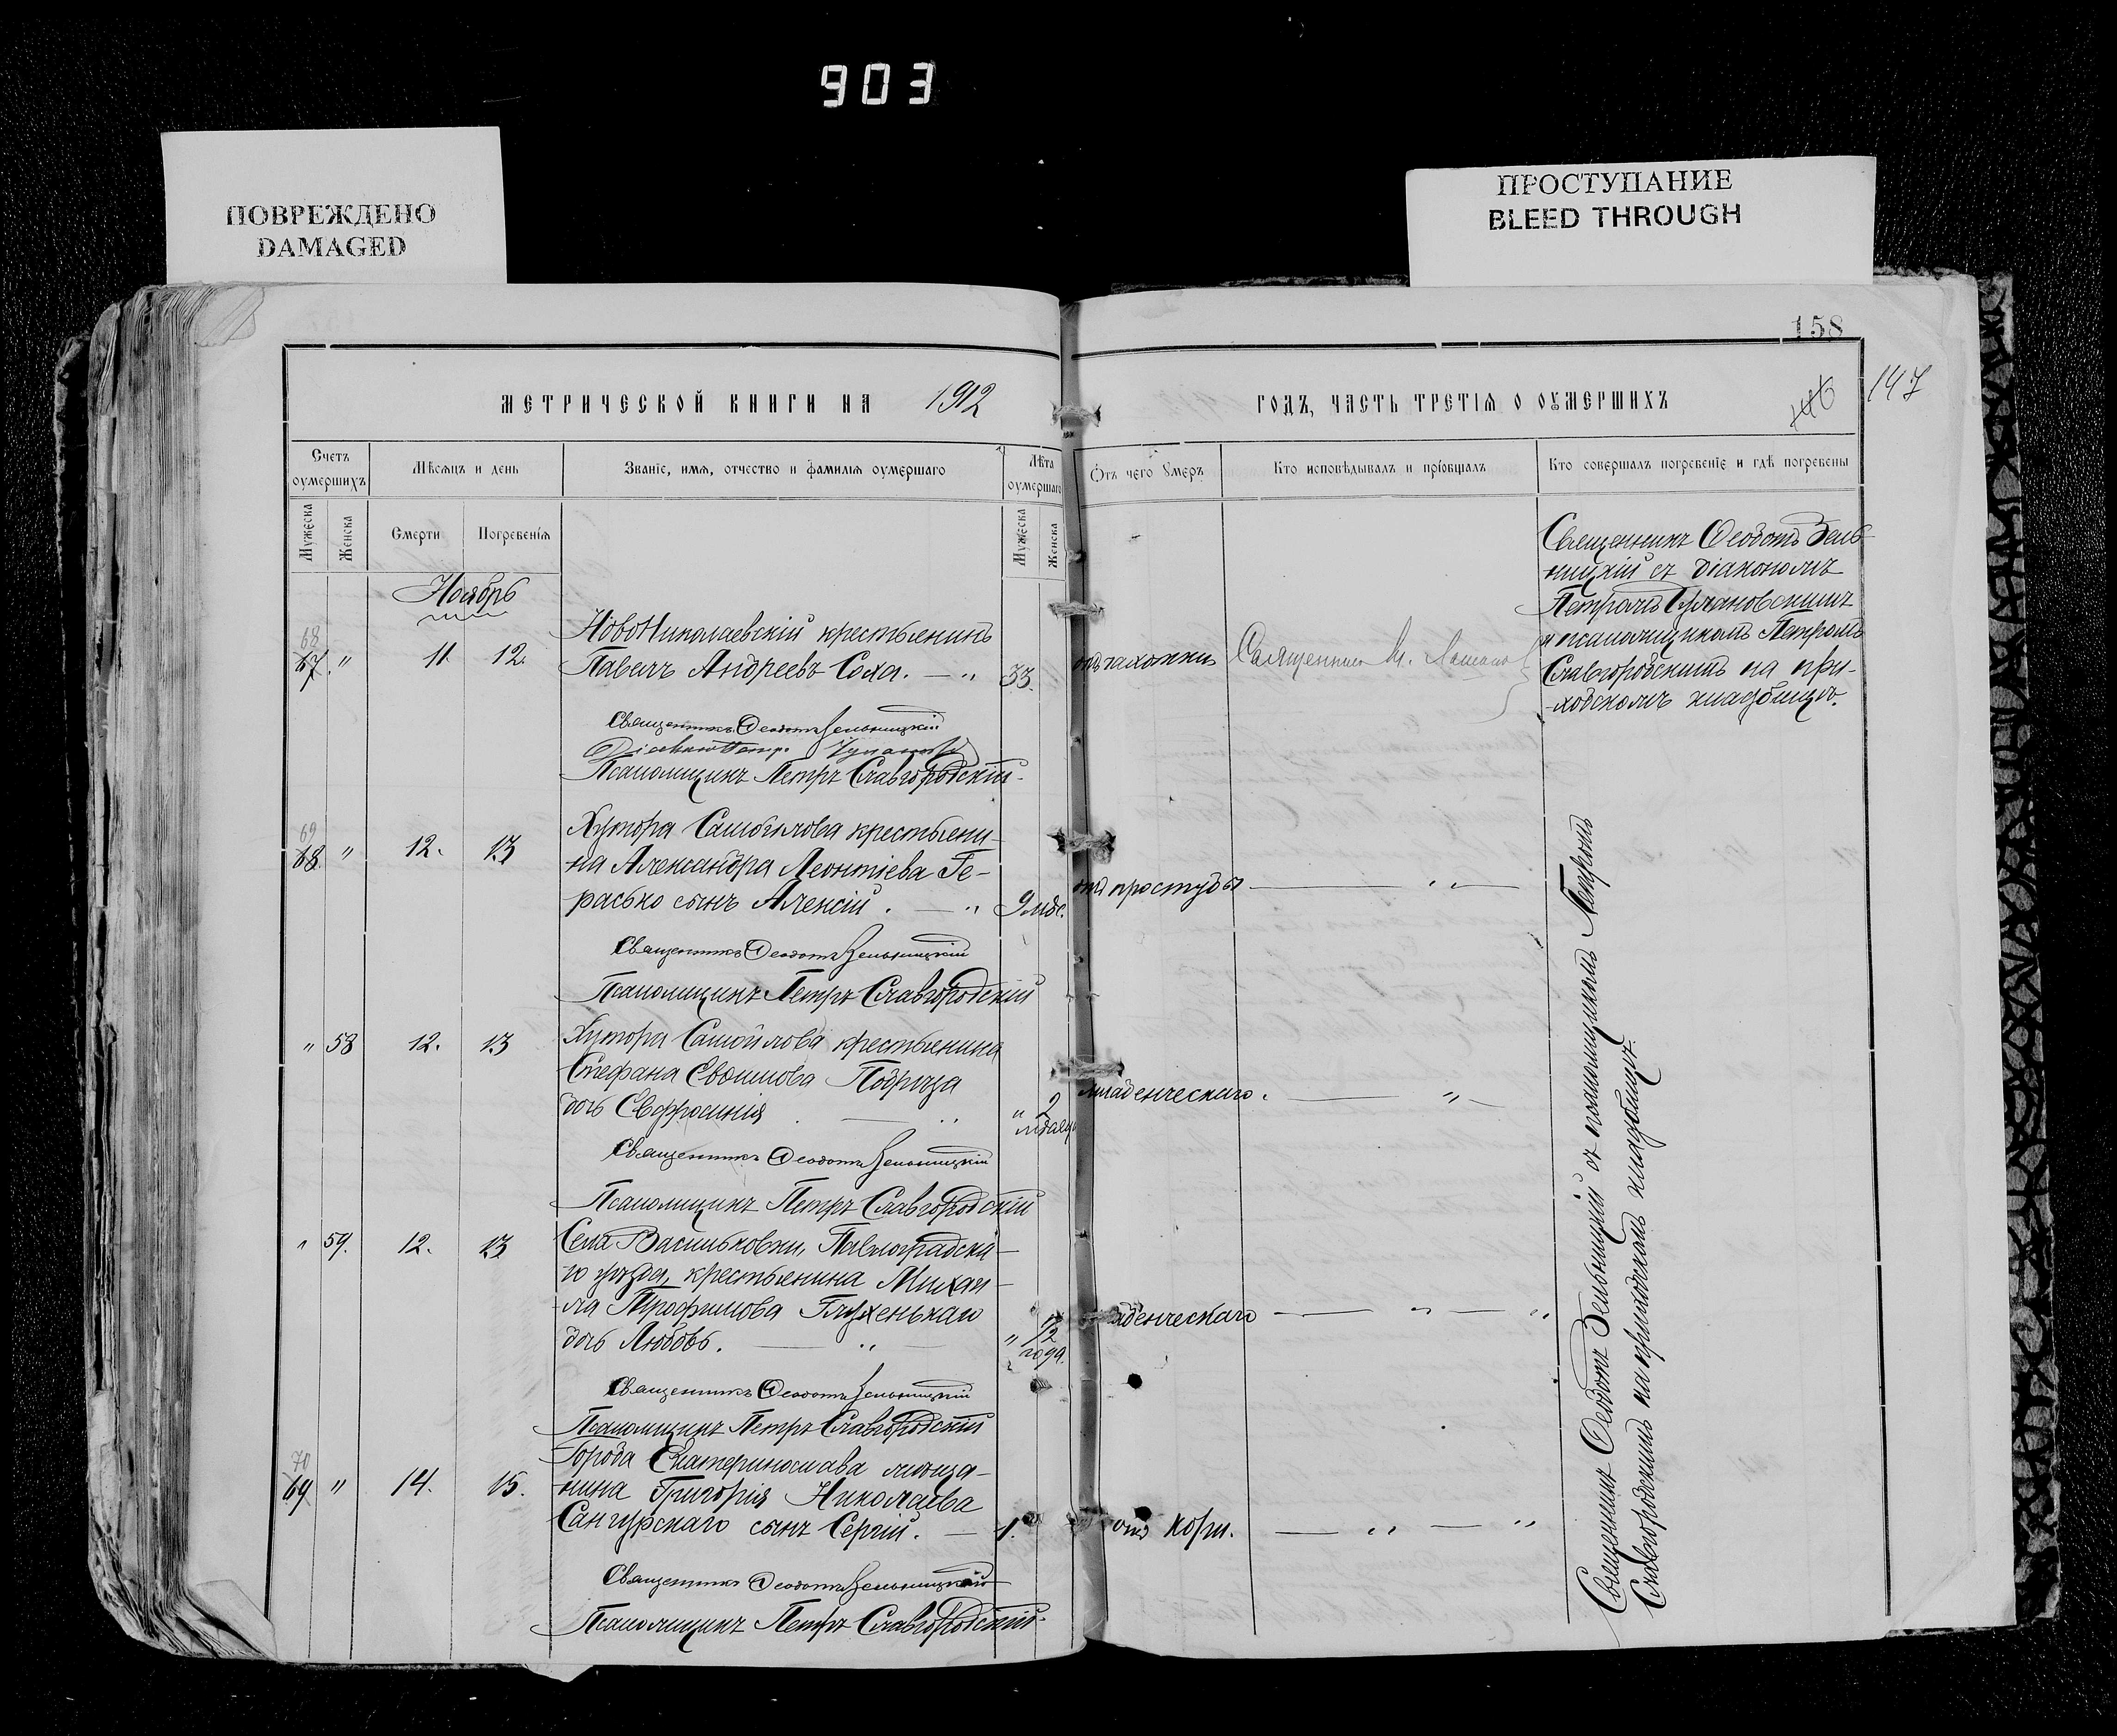 903
ПОВРЕЖДЕНО
DAMAGED
ПРОСТУПАНИЕ
BLEED THROUGH
158
МЕТРИЧЕСКОЙ КНИГИ НА 1912
ГОДЪ, ЧАСТЬ ТРЕТІЯ О ОУМЕРШИХЪ
146
147
Счетъ оумершихъ
Мѣсяцъ и день
Званіе, имя, отчество и фамилія оумершаго
Лѣта оумершаго
Отъ чего умеръ
Кто исповѣдывалъ и пріобщалъ
Кто совершалъ погребеніе и гдѣ погребены
Мужеска
Женска
Смерти
Погребенія
Мужеска
Женска
Ноябрь
68
67. " 11 12.
НовоНиколаевскій крестьянинъ
Павелъ Андреевъ Соха. — " 33.
отъ чахотки
Священникъ
Священникъ Ѳеодотъ Зель-
ницкій съ діакономъ
Петромъ
и псаломщикомъ Петромъ
Славгородскимъ на при-
ходскомъ кладбищѣ.
Священникъ Ѳеодотъ Зельницкій
Псаломщикъ Петръ Славгородскій
69
68 " 12. 13
Хутора Самойлова крестьяни-
на Александра Леонтіева Ге-
расько сынъ Алексій. — " 9 мѣс.
отъ простуды — " —
Священникъ Ѳеодотъ Зельницкій
Псаломщикъ Петръ Славгородскій
" 58 12. 13
Хутора Самойлова крестьянина
Стефана Евфимова Подріза
дочь Евфросинія — " " 2
мѣсяц.
младенческаго. — " —
Священникъ Ѳеодотъ Зельницкій
Псаломщикъ Петръ Славгородскій
" 59. 12. 13
Села Васильковки, Павлоградска-
го уѣзда, крестьянина Михаи-
ла Трофимова Глухенькаго
дочь Любовь. — " — " 1/2
года.
денческаго — " — "
Священникъ Ѳеодотъ Зельницкій
Псаломщикъ Петръ Славгородскій
70
69 " 14. 15.
Города Екатеринослава мѣща-
нина Григорія Николаева
Сангурскаго сынъ Сергій. — 1.
отъ кори. — " — "
Священникъ Ѳеодотъ Зельницкій
Псаломщикъ Петръ Славгородскій
Священникъ Ѳеодотъ Зельницкій съ псаломщикомъ Петромъ
Славгородскимъ на приходскомъ кладбищѣ.